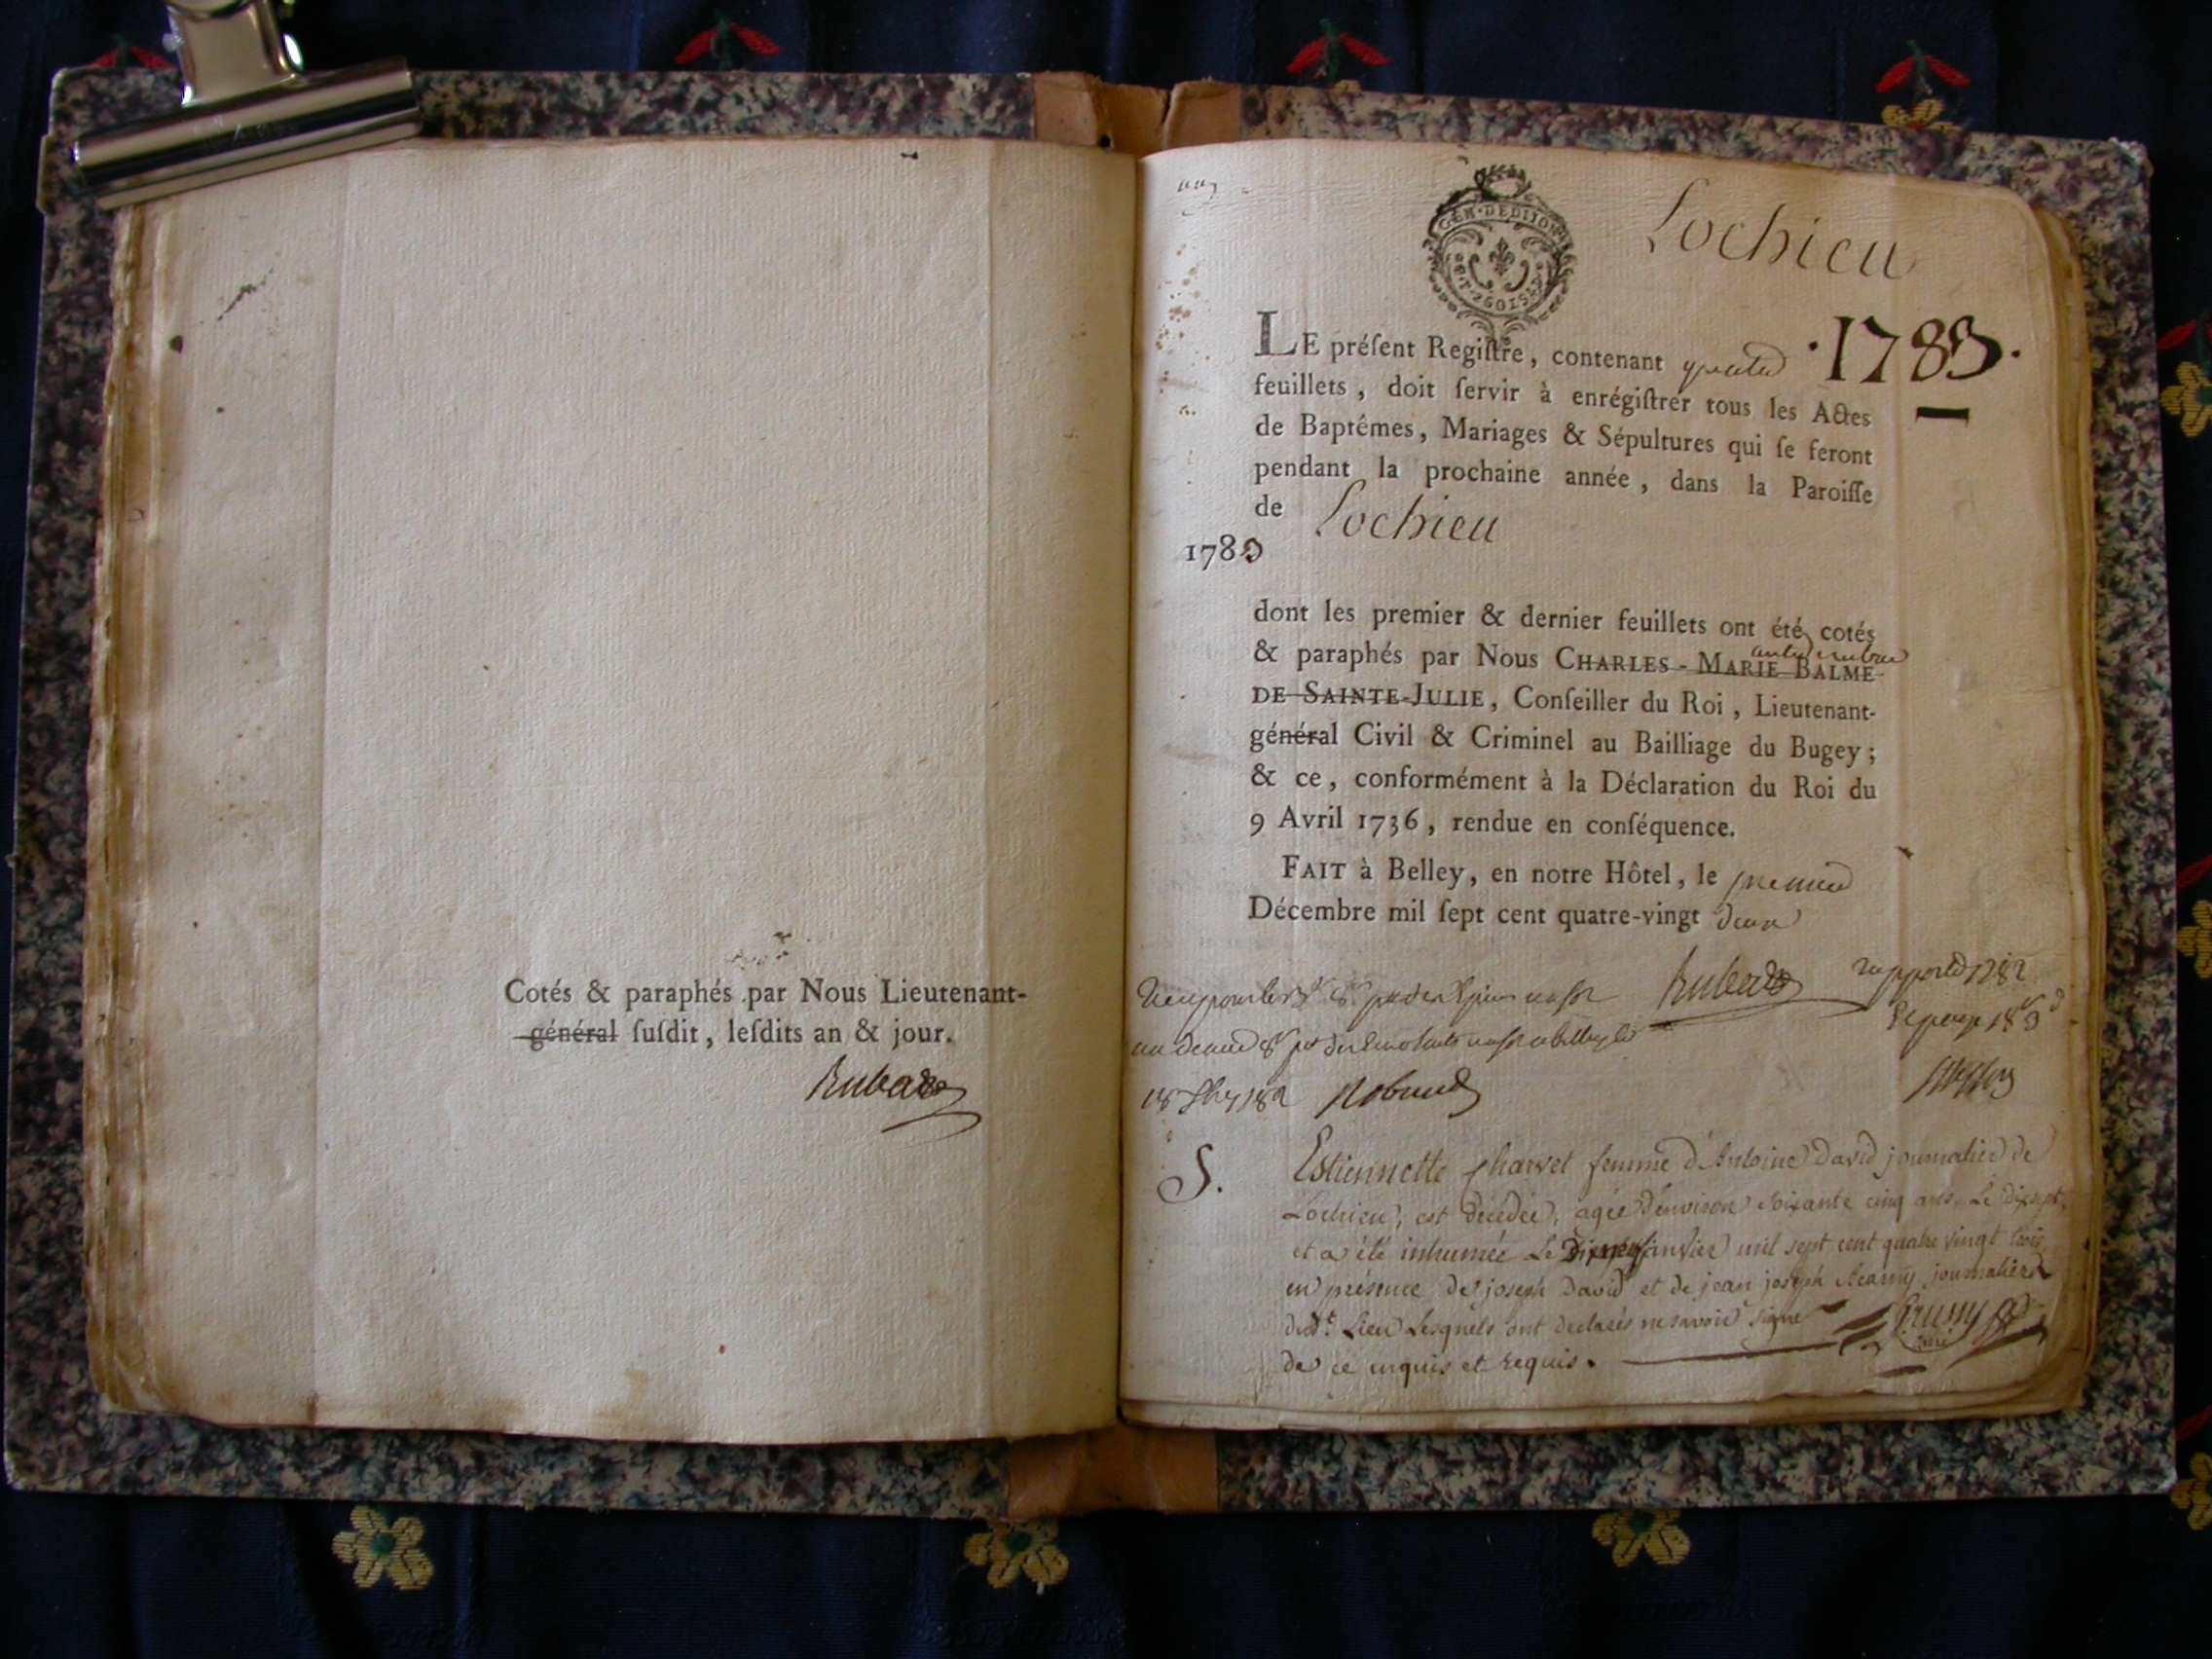 Cotés & paraphés par Nous Lieutenant-
général ſuſdit, leſdits an & jour.
Lochieu
GEN·DE DIJON
1783.
LE préſent Regiſtre, contenant quatre
feuillets, doit ſervir à enrégiſtrer tous les Actes
de Baptêmes, Mariages & Sépultures qui ſe feront
pendant la prochaine année, dans la Paroiſſe
de Lochieu
1783
dont les premier & dernier feuillets ont été cotés
& paraphés par Nous CHARLES-MARIE BALME
DE SAINTE-JULIE, Conſeiller du Roi, Lieutenant-
général Civil & Criminel au Bailliage du Bugey;
& ce, conformément à la Déclaration du Roi du
9 Avril 1736, rendue en conſéquence.
FAIT à Belley, en notre Hôtel, le premier
Décembre mil ſept cent quatre-vingt deux
S.
Estiennette Charvet femme d'Antoine David journalier de
Lochieu, est décédée, agée d'environ soixante cinq ans, le dixsept,
et a été inhumée le janvier mil sept cent quatre vingt trois
en présence de joseph David et de jean joseph journaliers
dud.t Lieu Lesquels ont declarés ne savoir signer
de ce enquis et requis.
curé